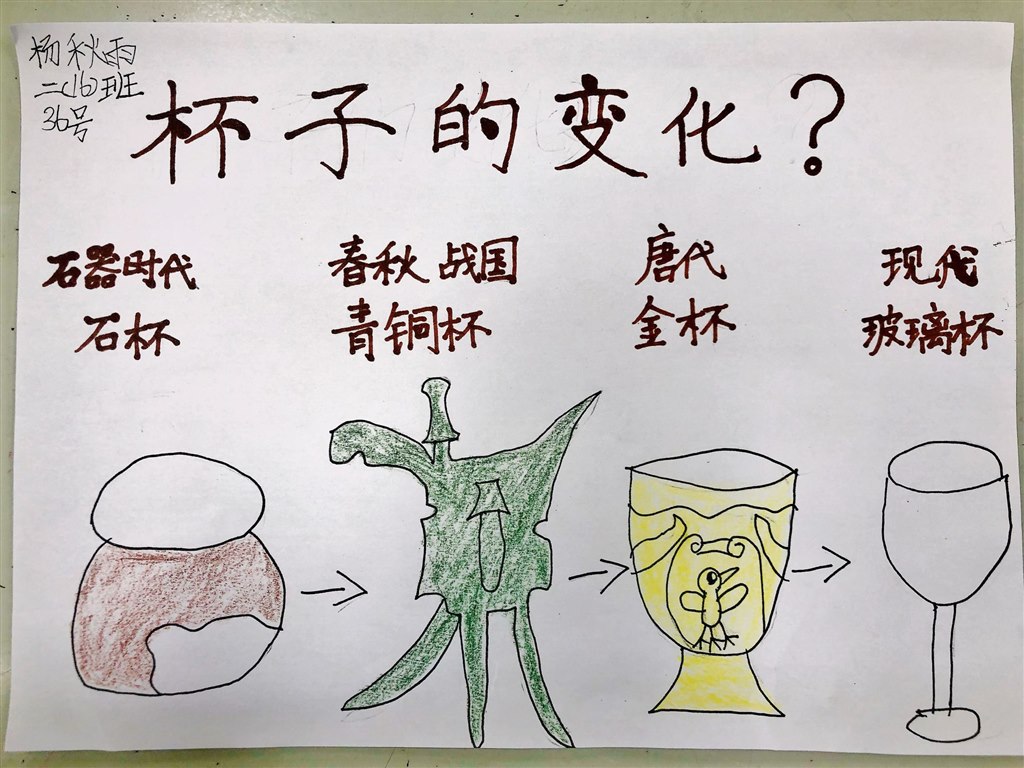 杨秋雨
二(16)班
36号
杯子的变化?
石器时代
石杯
春秋战国
青铜杯
唐代
金杯
现代
玻璃杯